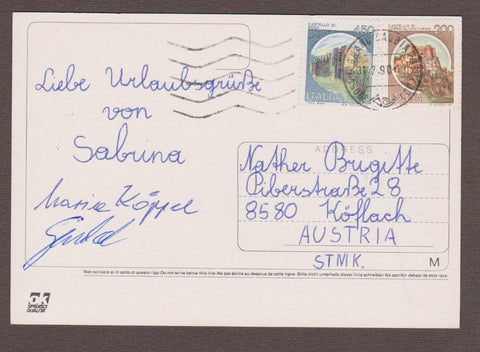 CASTELLO DI
450
200
ITALIA
31.7.90
Liebe Urlaubsgrüße
von
Sabrina
Maria Köppel
ADDRESS
Nather Brugitte
Piberstraße 28
8580 Köflach
AUSTRIA
STMK.
M
Non scrivere al di sotto di questa riga - Do not write below this line - Ne pas écrire au dessous de cette ligne - Bitte nicht unterhalb dieser linie schreiben - No escribir debajo de esta raya
ok